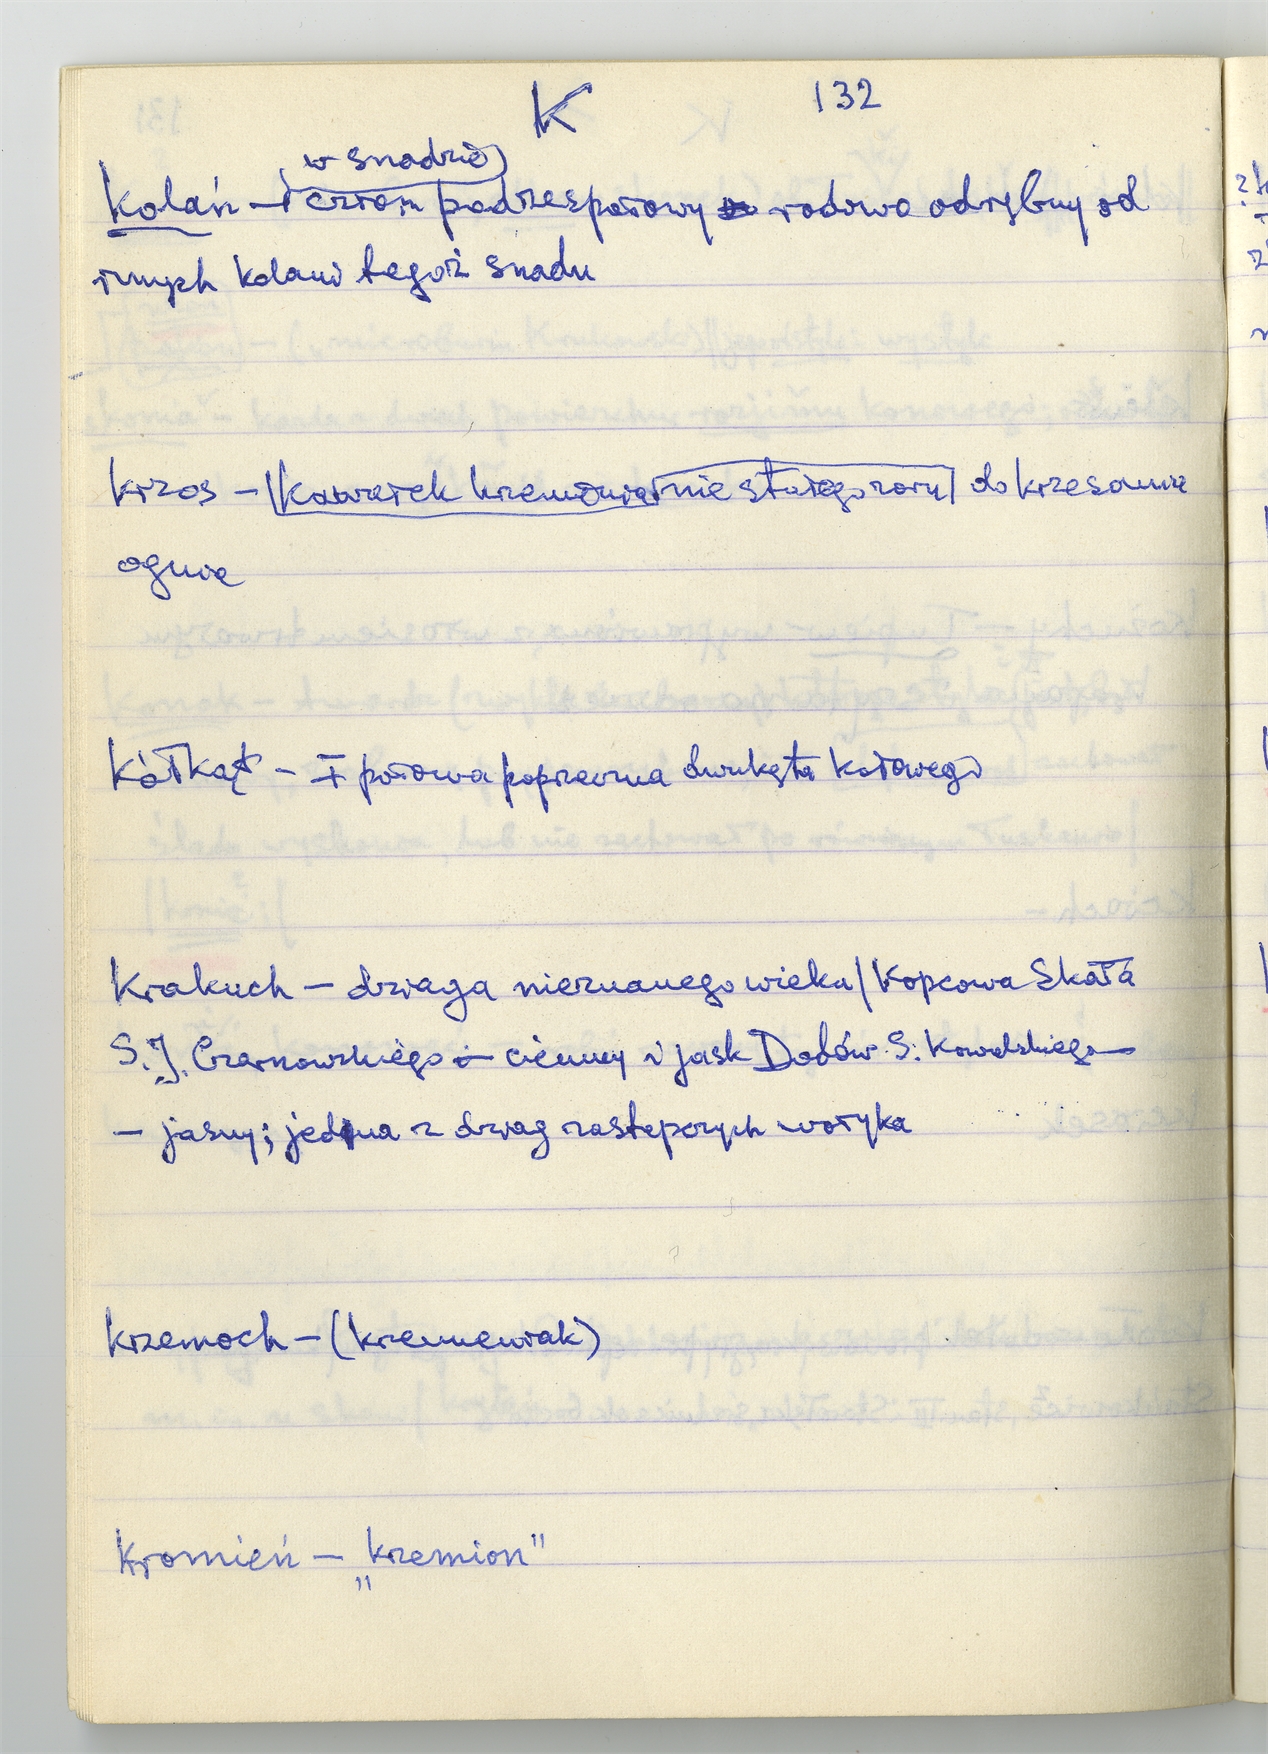 K 132
w snadzie)
Kolań – człon podzespołowy rodowo odrębny od
innych kolani tegoż snadu
Krzos – (Kawałek krzemienia nie do krzesania
ognia
Kółkąt – połowa poprzeczna dwukąta kołowego
Krakuch – dzwaga nieznanego wieku/Kopcowa Skała
S.J. Czarnowskiego – ciemny i jask Dobów S. Kowalskiego –
– jasny; jedna z dzwag zastępczych wołyka
Krzemoch – (krzemieniak)
Kromień – „krzemion"